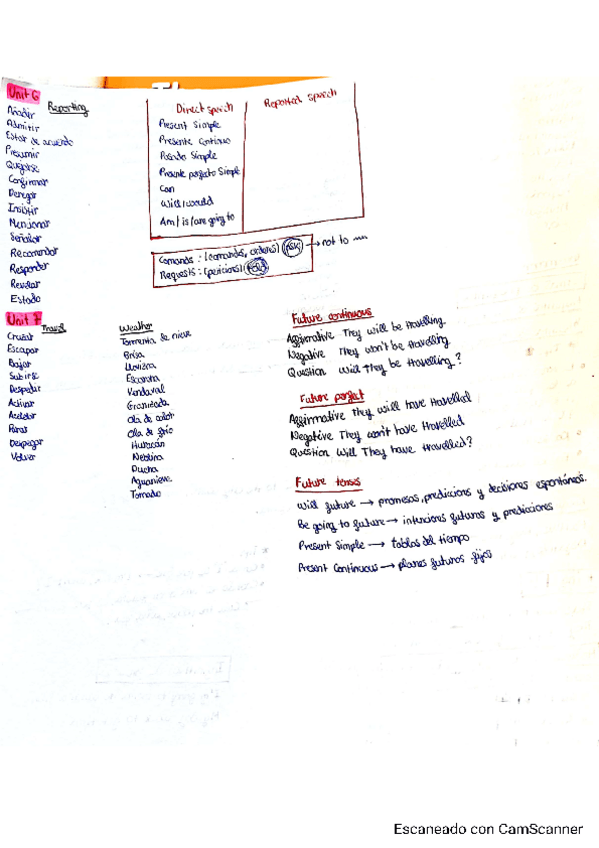 Unit 6
Reporting
Añadir
Admitir
Estar de acuerdo
Presumir
Quejarse
Confirmar
Denegar
Insistir
Mencionar
Señalar
Recomendar
Responder
Revelar
Estado
Direct speech
Reported speech
Present Simple
Presente continuo
Pasado Simple
Presente perfecto Simple
Can
Will/would
Am/is/are going to
Comands: (comandos, ordenes) (ask) → not to
Requests: (peticions) (told)
Unit 7
Travel
Cruzar
Escapar
Bajar
Subirse
Despedir
Activar
Acelerar
Parar
Despegar
Volver
Weather
Tormenta de nieve
Brisa
Llovizna
Escarcha
Vendaval
Granizada
Ola de calor
Ola de frio
Huracán
Neblina
Ducha
Aguanieve
Tornado
Future continuous
Affirmative They will be travelling.
Negative They won't be travelling
Question Will they be travelling?
Future perfect
Affirmative They will have travelled
Negative They won't have travelled
Question Will They have travelled?
Future tenses
Will future → promesas, prediccions y decisiones espontáneas.
Be going to future → intencions futuras y predicciones
Present Simple → tablas del tiempo
Present Continuous → planes futuros fijos
Escaneado con CamScanner